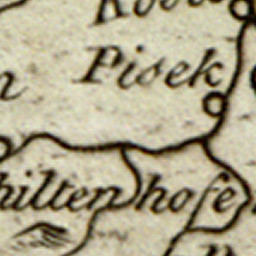 Pisek
hilten hofe